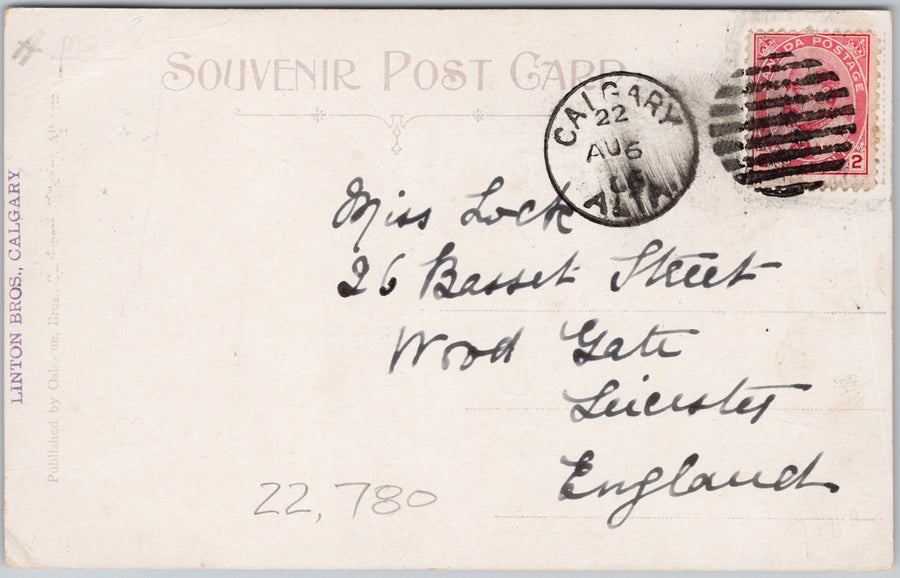 SOUVENIR POST CARD
CANADA POSTAGE
2
CALGARY
22
AU 6
ALTA.
Miss Lock
26 Basset Street
Wood Gate
Leicester
England
22,780
LINTON BROS., CALGARY
Published by Osborne, Bros.